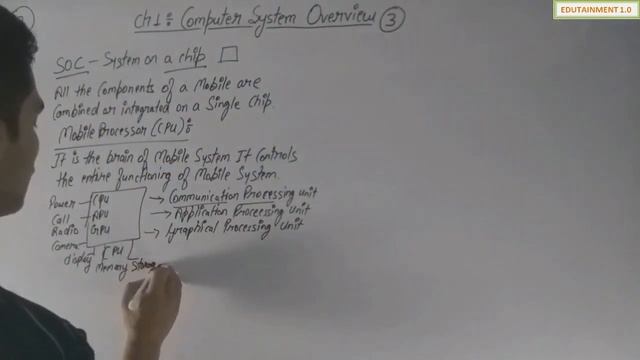 EDUTAINMENT 1.0
Ch1: Computer System Overview 3
SOC - System on a chip
All the Components of a Mobile are
Combined or integrated on a Single Chip.
Mobile Processor (CPU):
It is the brain of Mobile System It Controls
the entire functioning of Mobile System.
Power CPU → Communication Processing unit
Call APU → Application Processing unit
Radio GPU → Graphical Processing Unit
Camera
display CPU
Memory Storage